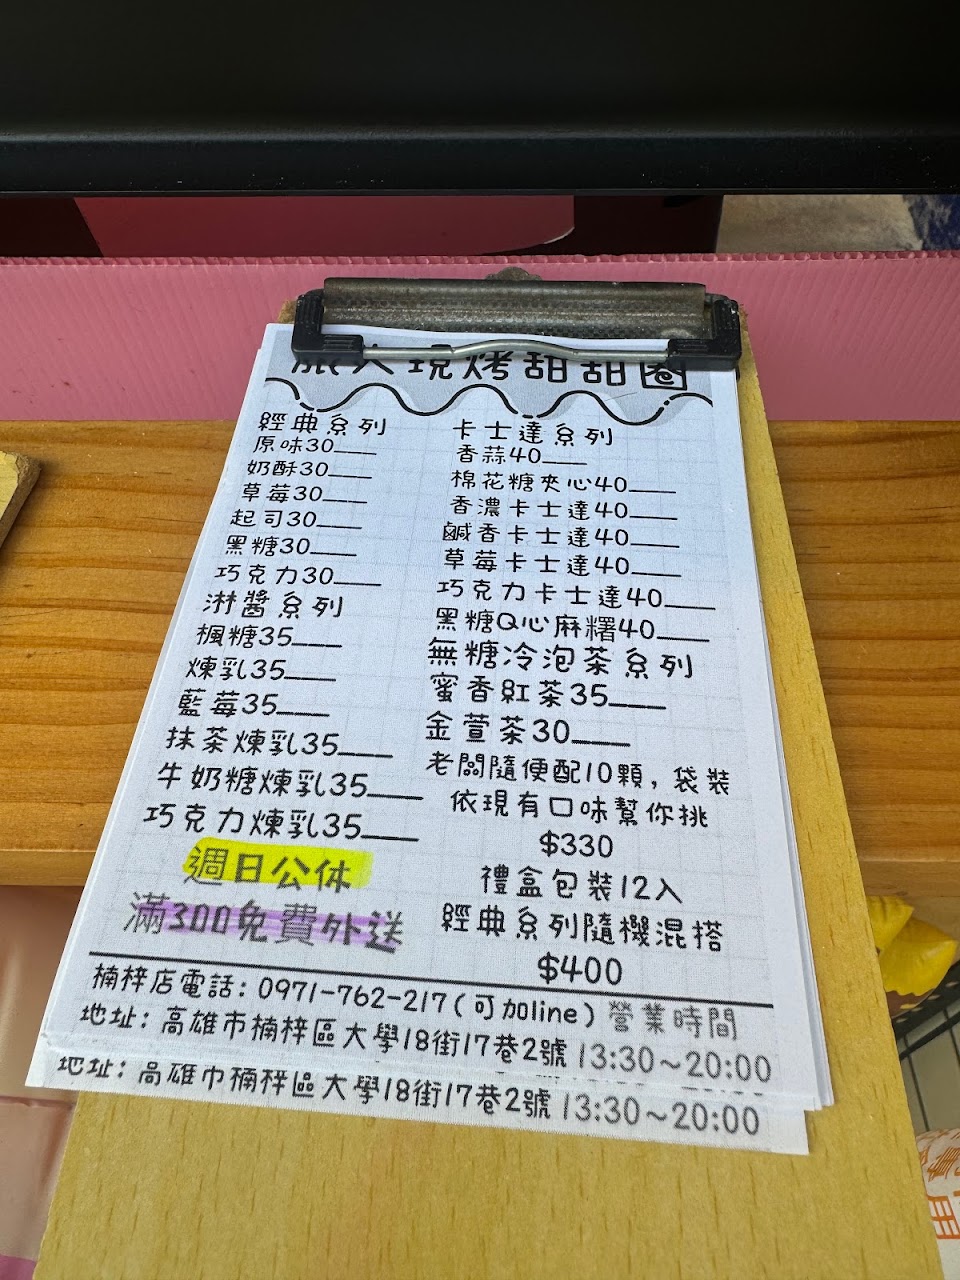 現烤甜甜圈
經典系列
原味30___
奶酥30___
草莓30___
起司30___
黑糖30___
巧克力30___
淋醬系列
楓糖35___
煉乳35___
藍莓35___
抹茶煉乳35___
牛奶糖煉乳35___
巧克力煉乳35___
週日公休
滿300免費外送
卡士達系列
香蒜40___
棉花糖夾心40___
香濃卡士達40___
鹹香卡士達40___
草莓卡士達40___
巧克力卡士達40___
黑糖Q心麻糬40___
無糖冷泡茶系列
蜜香紅茶35___
金萱茶30___
老闆隨便配10顆，袋裝
依現有口味幫你挑
$330
禮盒包裝12入
經典系列隨機混搭
$400
楠梓店電話：0971-762-217（可加line）營業時間
地址：高雄市楠梓區大學18街17巷2號 13:30～20:00
地址：高雄市楠梓區大學18街17巷2號 13:30～20:00